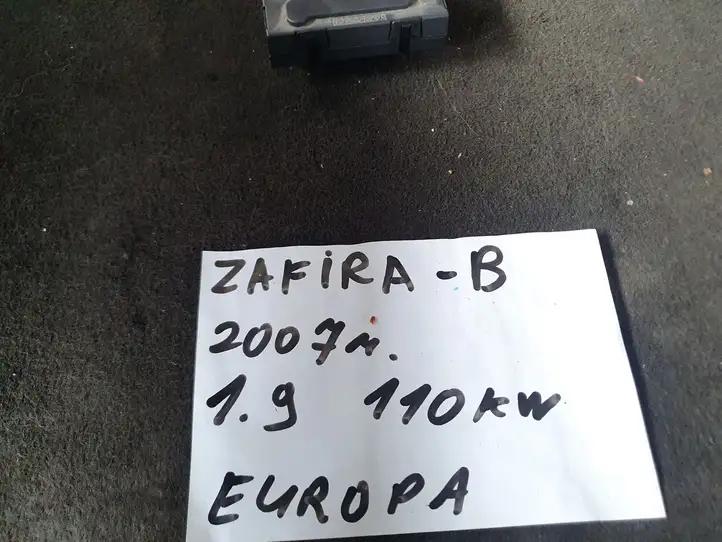 ZAFIRA - B
2007m.
1.9 110kw
EUROPA